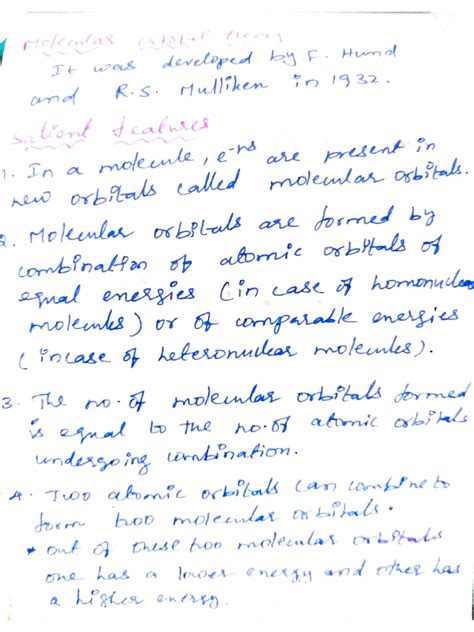 Molecular orbital theory
It was developed by F. Hund
and R.S. Mulliken in 1932.
Salient features
1. In a molecule, e-ns are present in
new orbitals called molecular orbitals.
2. Molecular orbitals are formed by
combination of atomic orbitals of
equal energies (in case of homonuclear
molecules) or of comparable energies
(incase of heteronuclear molecules).
3. The no. of molecular orbitals formed
is equal to the no. of atomic orbitals
undergoing combination.
4. Two atomic orbitals can combine to
form two molecular orbitals.
* out of these two molecular orbitals
one has a lower energy and other has
a higher energy.